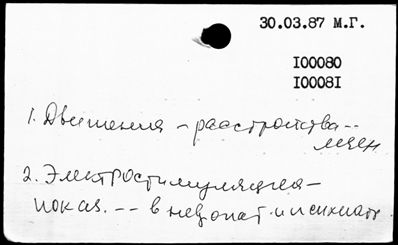 30.03.87 М.Г.
I00080
I0008I
1. Движения – расстройства --
лечен
2. Электростимуляция –
показ. -- в невропат. и психиатр